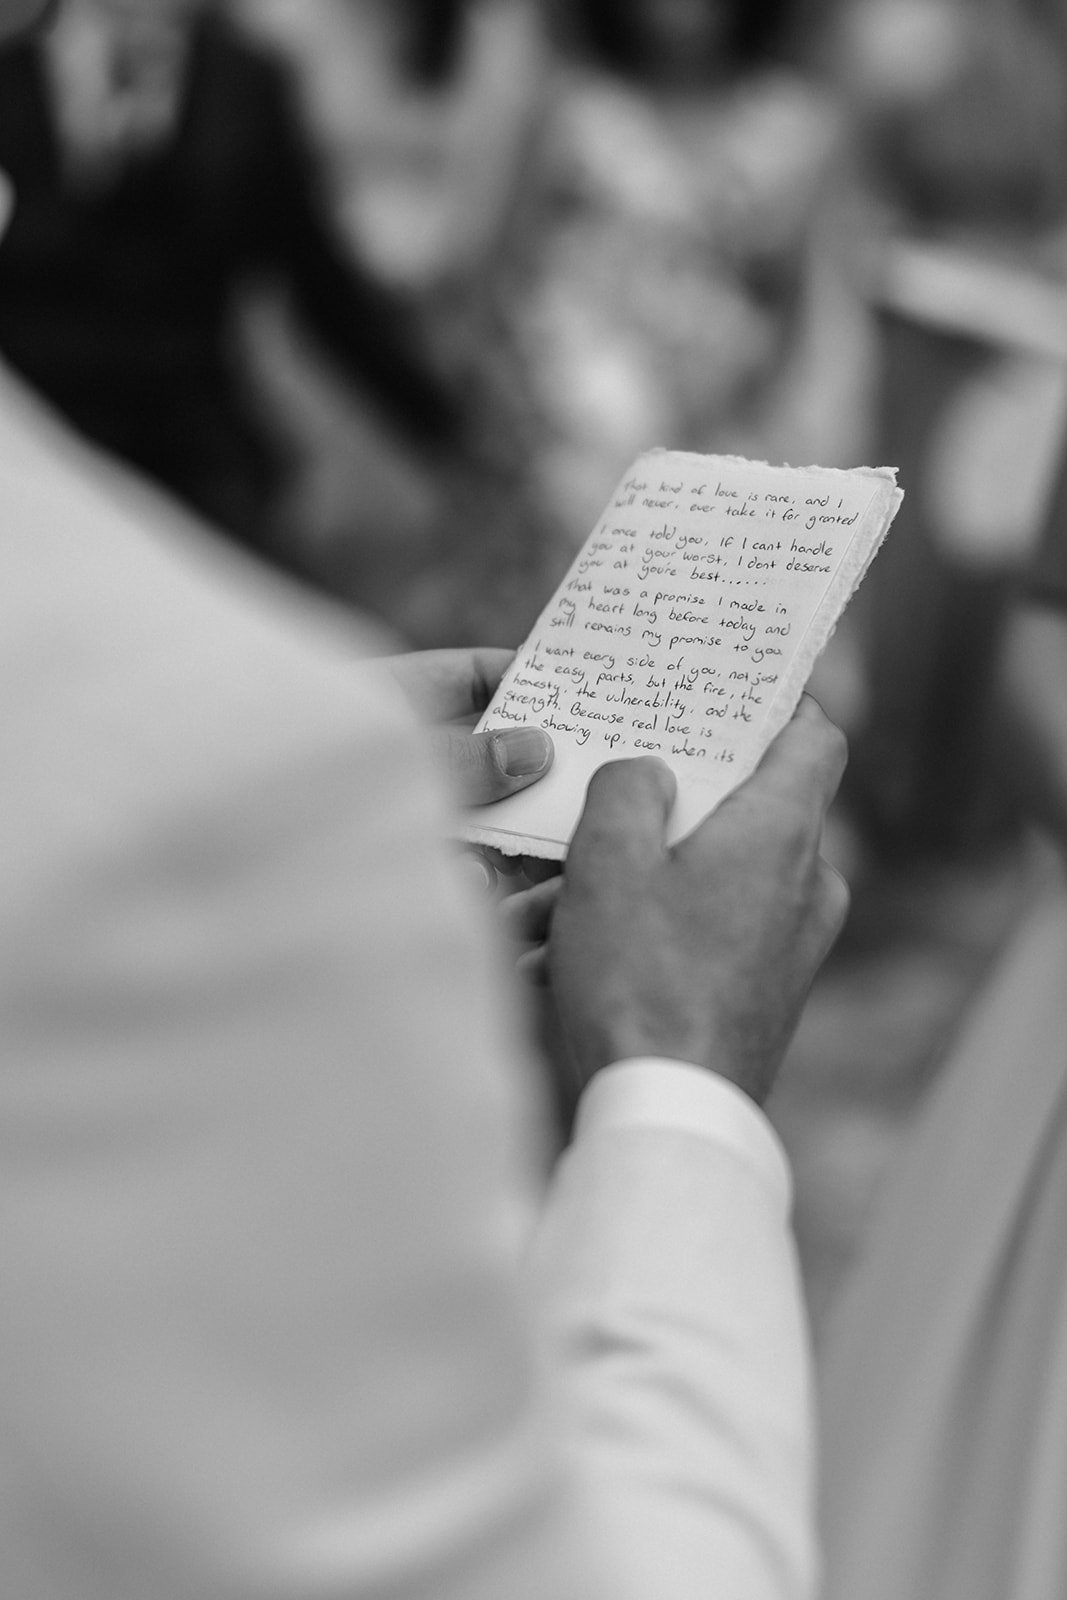 That kind of love is rare, and I
will never, ever take it for granted
I once told you, If I cant handle
you at your worst, I dont deserve
you at you're best......
That was a promise I made in
my heart long before today and
still remains my promise to you.
I want every side of you, not just
the easy parts, but the fire, the
honesty, the vulnerability, and the
strength. Because real love is
about showing up, even when it's